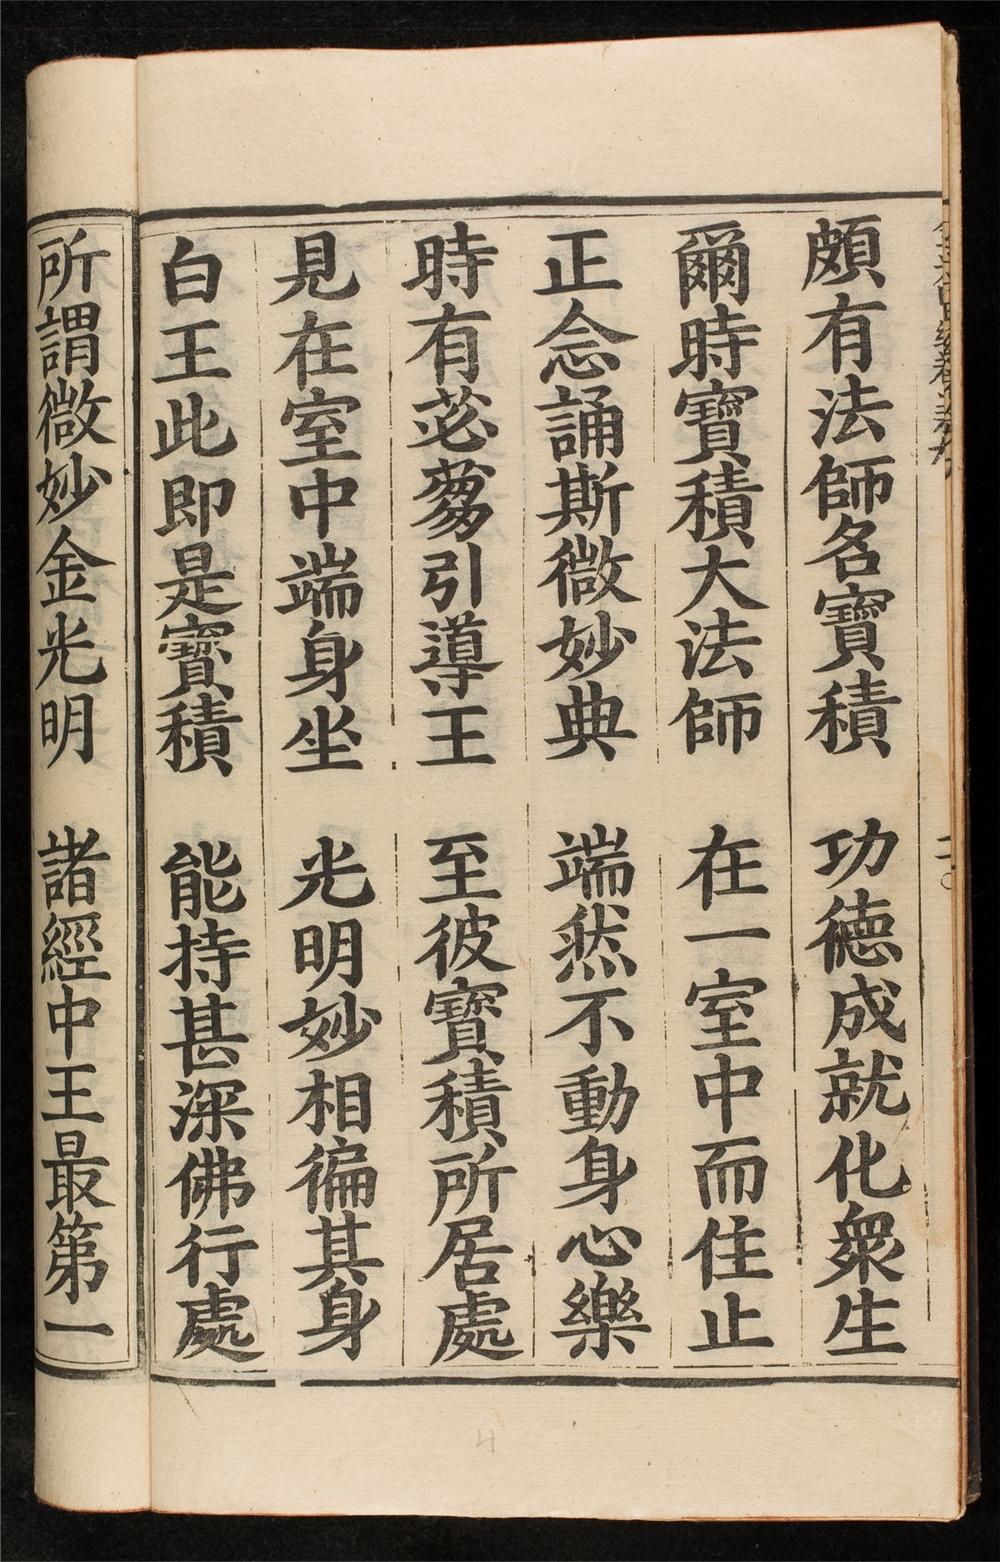 頗有法師名寶積　功德成就化衆生
爾時寶積大法師　在一室中而住止
正念誦斯微妙典　端然不動身心樂
時有苾蒭引導王　至彼寶積所居處
見在室中端身坐　光明妙相徧其身
白王此即是寶積　能持甚深佛行處
所謂微妙金光明　諸經中王最第一
4